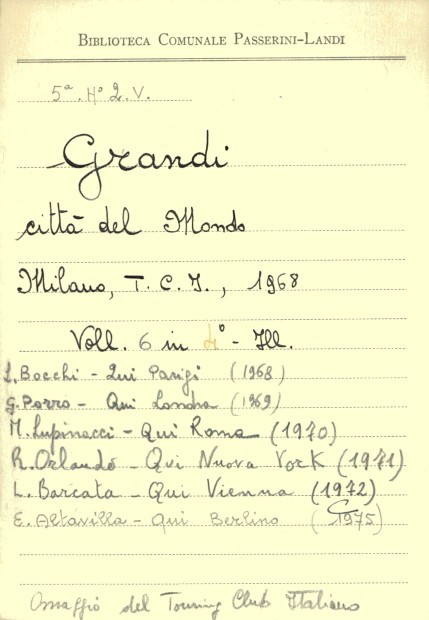 BIBLIOTECA COMUNALE PASSERINI-LANDI
5ª. Hº 2. V.
Grandi
città del Mondo
Milano, T. C. I., 1968
Voll. 6 in 4° - Ill.
L. Bocchi - Qui Parigi (1968)
G. Porro - Qui Londra (1969)
M. Lupinacci - Qui Roma (1970)
R. Orlando - Qui Nuova York (1971)
L. Barcata - Qui Vienna (1972)
E. Altavilla - Qui Berlino (1975)
Omaggio del Touring Club Italiano